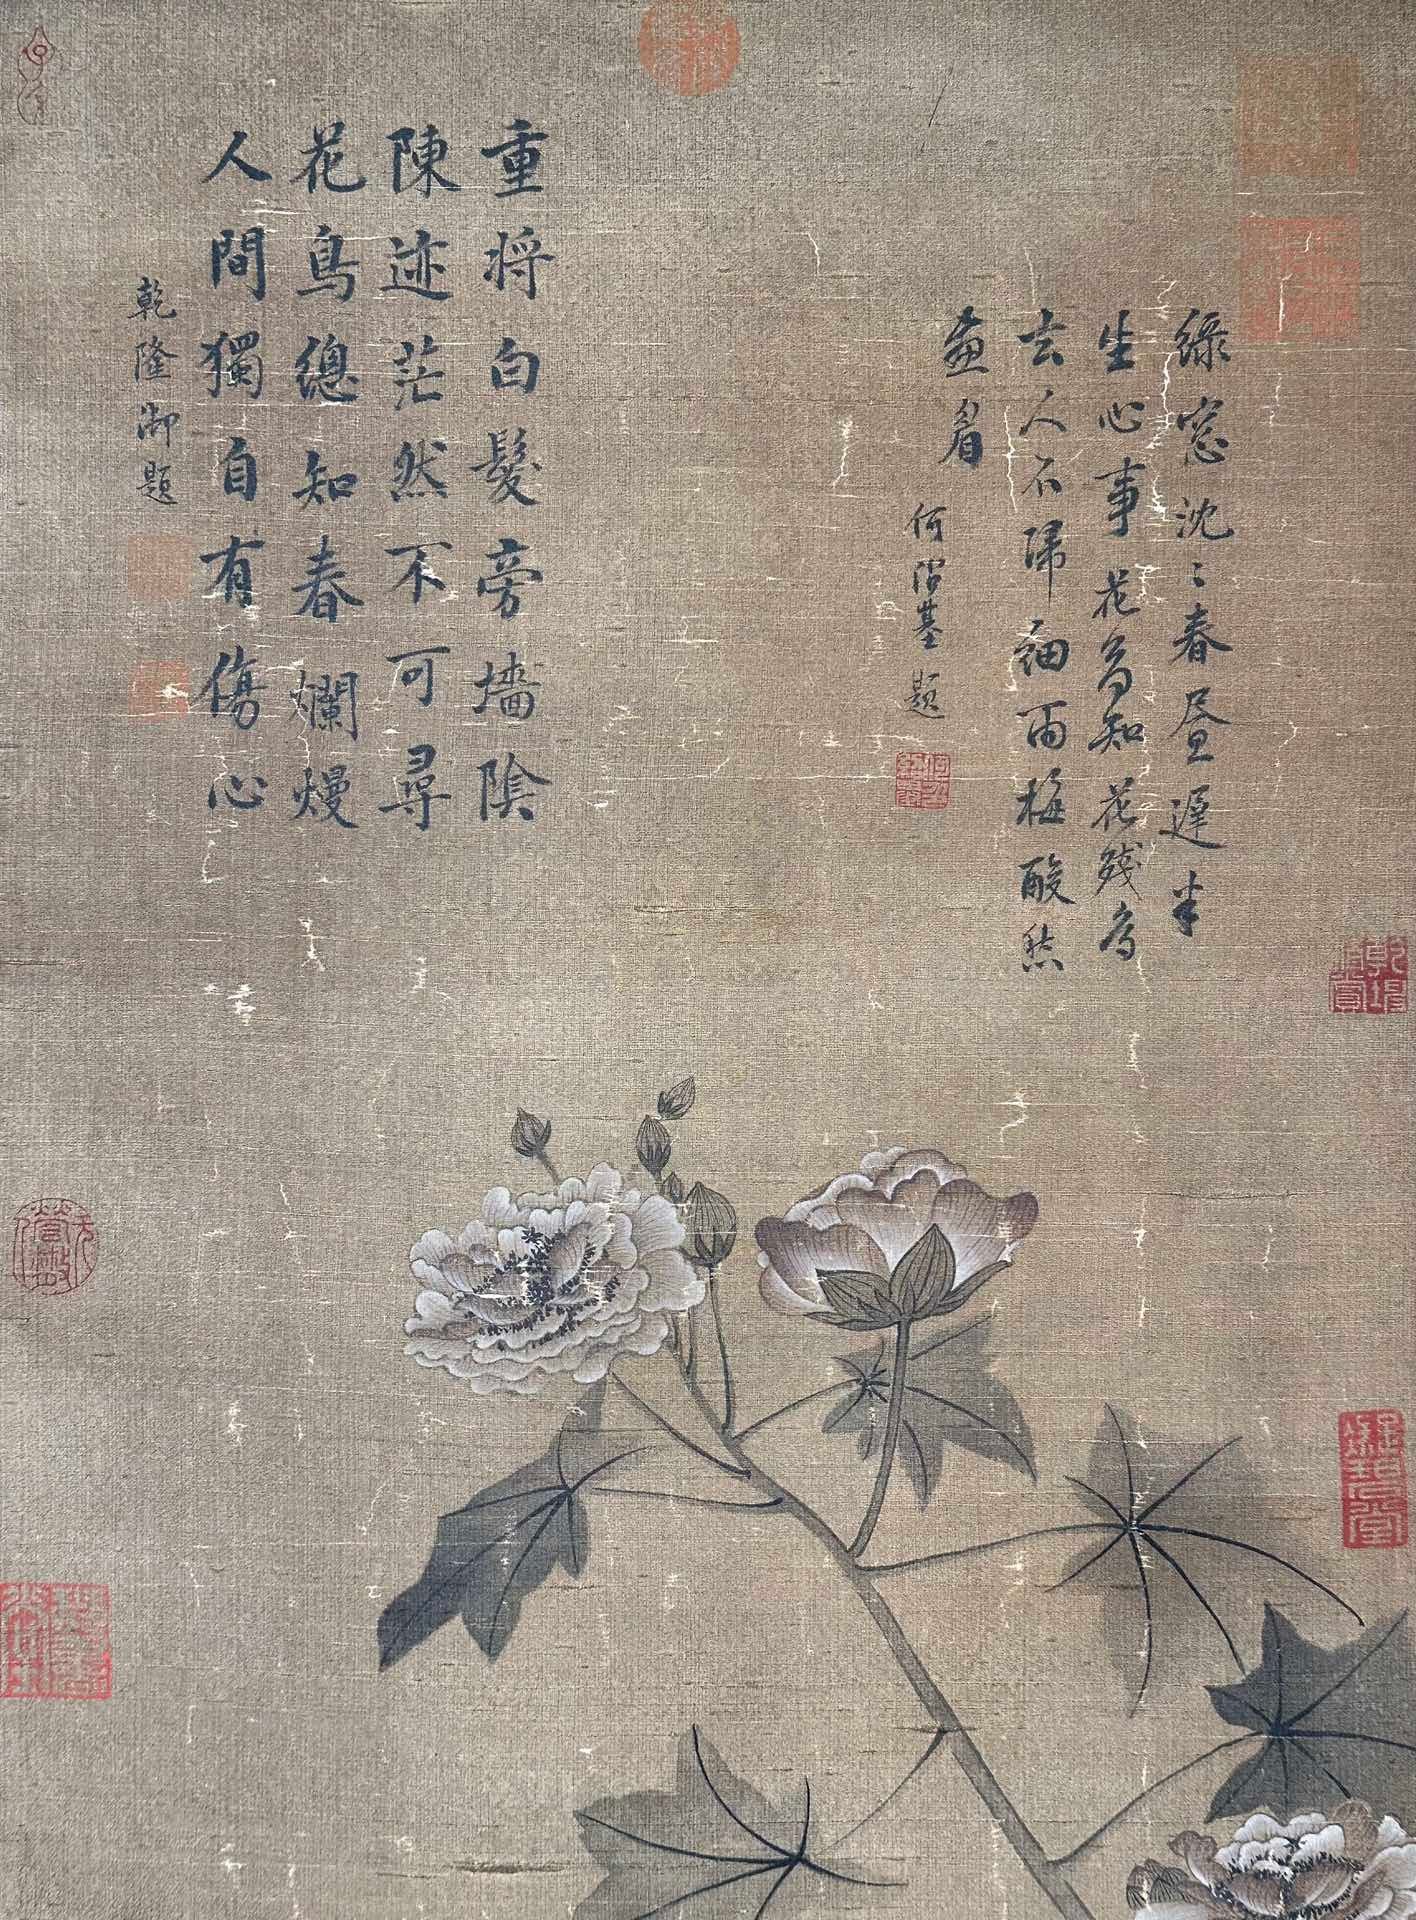 綠窓沈〻春晝遲半
生心事花為知花殘為
去人不歸細雨梅酸愁
畫眉
何紹基題
重将白髮旁墻陰
陳迹茫然不可尋
花鳥總知春爛熳
人間獨自有傷心
乾隆御題